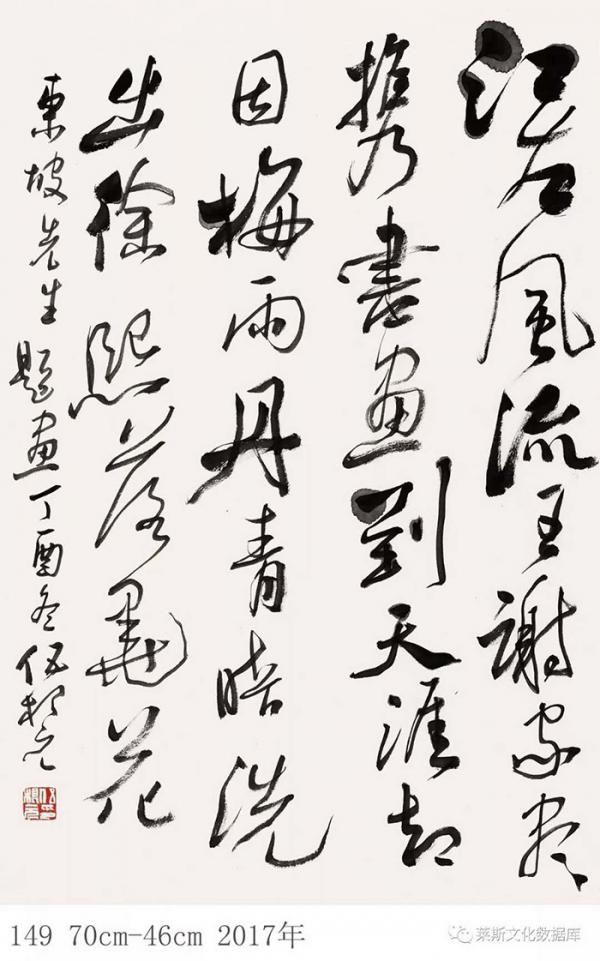 江左風流王謝家盡
携書畫到天涯却
因梅雨丹青暗洗
出徐熙落墨花
東坡先生題畫丁酉冬
149 70cm-46cm 2017年
莱斯文化数据库